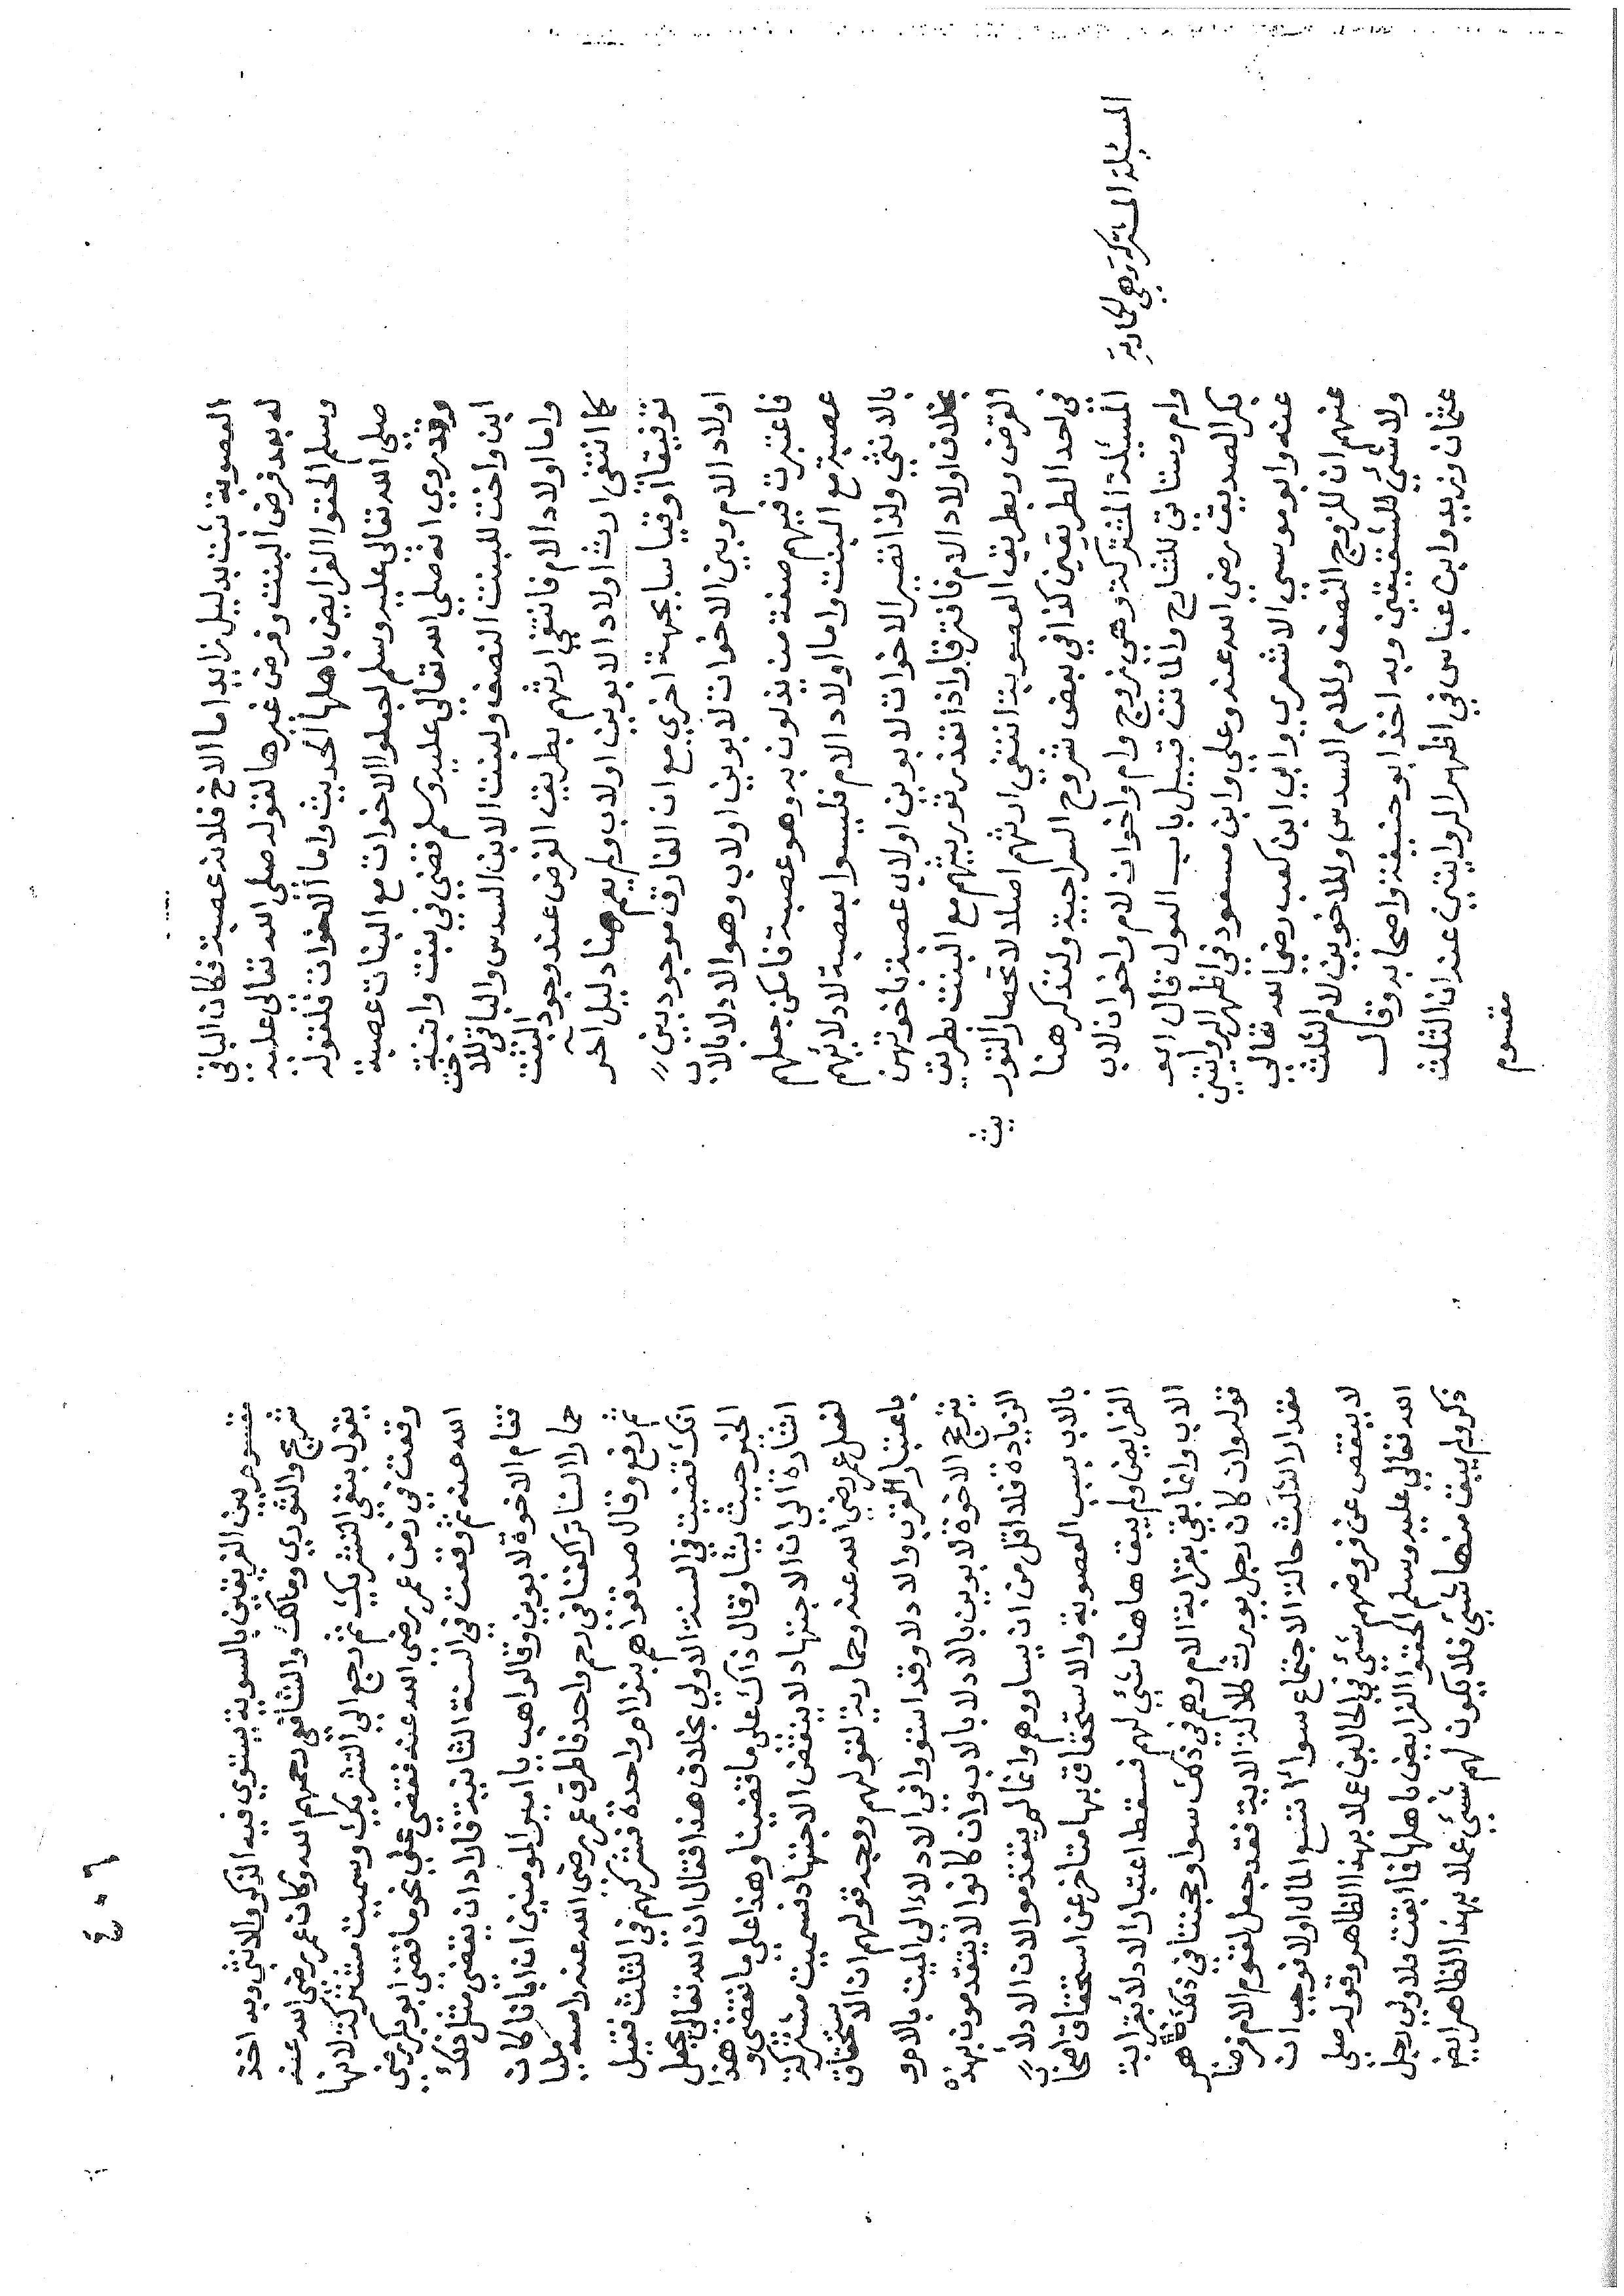 العصوبة ثبت بدليل زايد اما الاخ فلانه عصبة فكان الباقي
له بعد فرض البنت وفرض غيرها لقوله صلي الله تعالى عليه
وسلم الحقوا الفرايض باهلها الحديث واما الاخوات فلقوله
صلي الله تعالي عليه وسلم اجعلوا الاخوات مع البنات عصبة
وقد روي انه صلي الله تعالي عليه وسلم قضي في بنت وابنة
ابن واخت للبنت النصف ولبنت الابن السدس والباقي للاخت
واما اولاد الام فانتفي ارثهم بطريق الفرض عند وجود البنت
كما انتفى ارث اولاد الابوين اولاب ولم يقم هنا دليل آخر
توفيقا اوقياسا بجهة اخري مع ان الفارق موجود بين
اولاد الام وبين الاخوات لابوين اولاب وهو الادلا بالاب
فاعتبرت فيهم صفة من يدلون به وهو عصبة فامكن جعلهم
عصبة مع البنت واما اولاد الام فليسوا بعصبة لادلائهم
بالانثي ولذا تصير الاخوات لابوين اولاب عصبة باخوتهن
بخلاف اولاد الام فافترقا واذا تعذر توريثهم مع البنت بطريق
الفرض وبطريق العصوبة انتفى ارثهم اصلا لانحصار التوريث
في احد الطريقين كذا في بعض شروح السراجية ولنذكر هنا
المسئلة المشتركة وهي زوج وام واخوان لام واخوان لاب
وام وستاتي للشارح والماتن قبيل باب العول قال ابو
بكر الصديق رضي الله عنه وعلي وابن مسعود في اظهر الروايتين
عنه وابو موسي الاشعري وابي ابن كعب رضي الله تعالي
عنهم ان للزوج النصف وللام السدس وللاخوين لام الثلث
ولا شئ للشقيقين وبه اخذ ابو حنيفة واصحابه وقال
عثمان وزيد وابن عباس في اظهر الروايتين عنه ان الثلث
مقسوم
المسئلة المشتركة وهي الحمارية
٤٠٦
مقسوم بين الفريقين بالسوية يستوي فيه الذكر والانثي وبه اخذ
شريح والثوري ومالك والشافعي رحمهم الله وكان عمر رضي الله عنه
يقول بنفي التشريك ثم رجع الي التشريك وسميت مشتركة لانها
وقعت في زمن عمر رضي الله عنه فقضي علي نحو ما قضي ابو بكر رضي
الله عنه ثم وقعت في السنة الثانية فاراد ان يقضي مثل ذلك
فقام الاخوة لابوين وقالوا هب يا امير المومنين ان ابانا كان
حمارا السنا تراكضنا في رحم واحد فاطرق عمر رضي الله عنه راسه مليا
ثم رفع وقال صدقوا هم بنوا ام واحدة فشركهم في الثلث فقيل
انك قضيت في السنة الاولي بخلاف هذا فقال ان الله تعالي يجعل
الخير حيث يشا وقال ذاك على ما قضينا وهذا علي ما نقضي و هذا
اشارة الى ان الاجتهاد لا ينقض الاجتهاد فسميت مشتركة
لفعل عمر رضي الله عنه وحمارية لقولهم ووجه قولهم ان الاستحقاق
باعتبار القرب والادلا وقد استووا في الادلاء الى الميت بالام و
يترجح الاخوة لابوين بالادلا بالاب وان كانوا لا يتقدمون بهذه
الزيادة فلا اقل من ان يساووهم وانما لم يتقدموا لان الادلاء
بالاب سبب العصوبة والاستحقاق بها متاخر عن استحقاق اصحاب
الفرايض ولم يبق هاهنا شئي لهم فسقط اعتبار الادلا بقرابة
الاب وانما بقي بقرابة الام وهم في ذلك سوا وحجتنا في ذلك ظاهر
قوله وان كان رجل يورث كلالة الاية فقد جعل لقوم الام فرضا
مقدارا الثلث حالة الاجتماع سوا اتسع المال اولا فوجب ان
لا ينقص عن فروضهم شئ في الحالين عملا بهذا الظاهر وقوله صلي
الله تعالي عليه وسلم الحقوا الفرايض باهلها فما ابقت فلاولي رجل
ذكر ولم يبق منها شئي فلا يكون لهم شئي عملا بهذا الظاهر ايضا